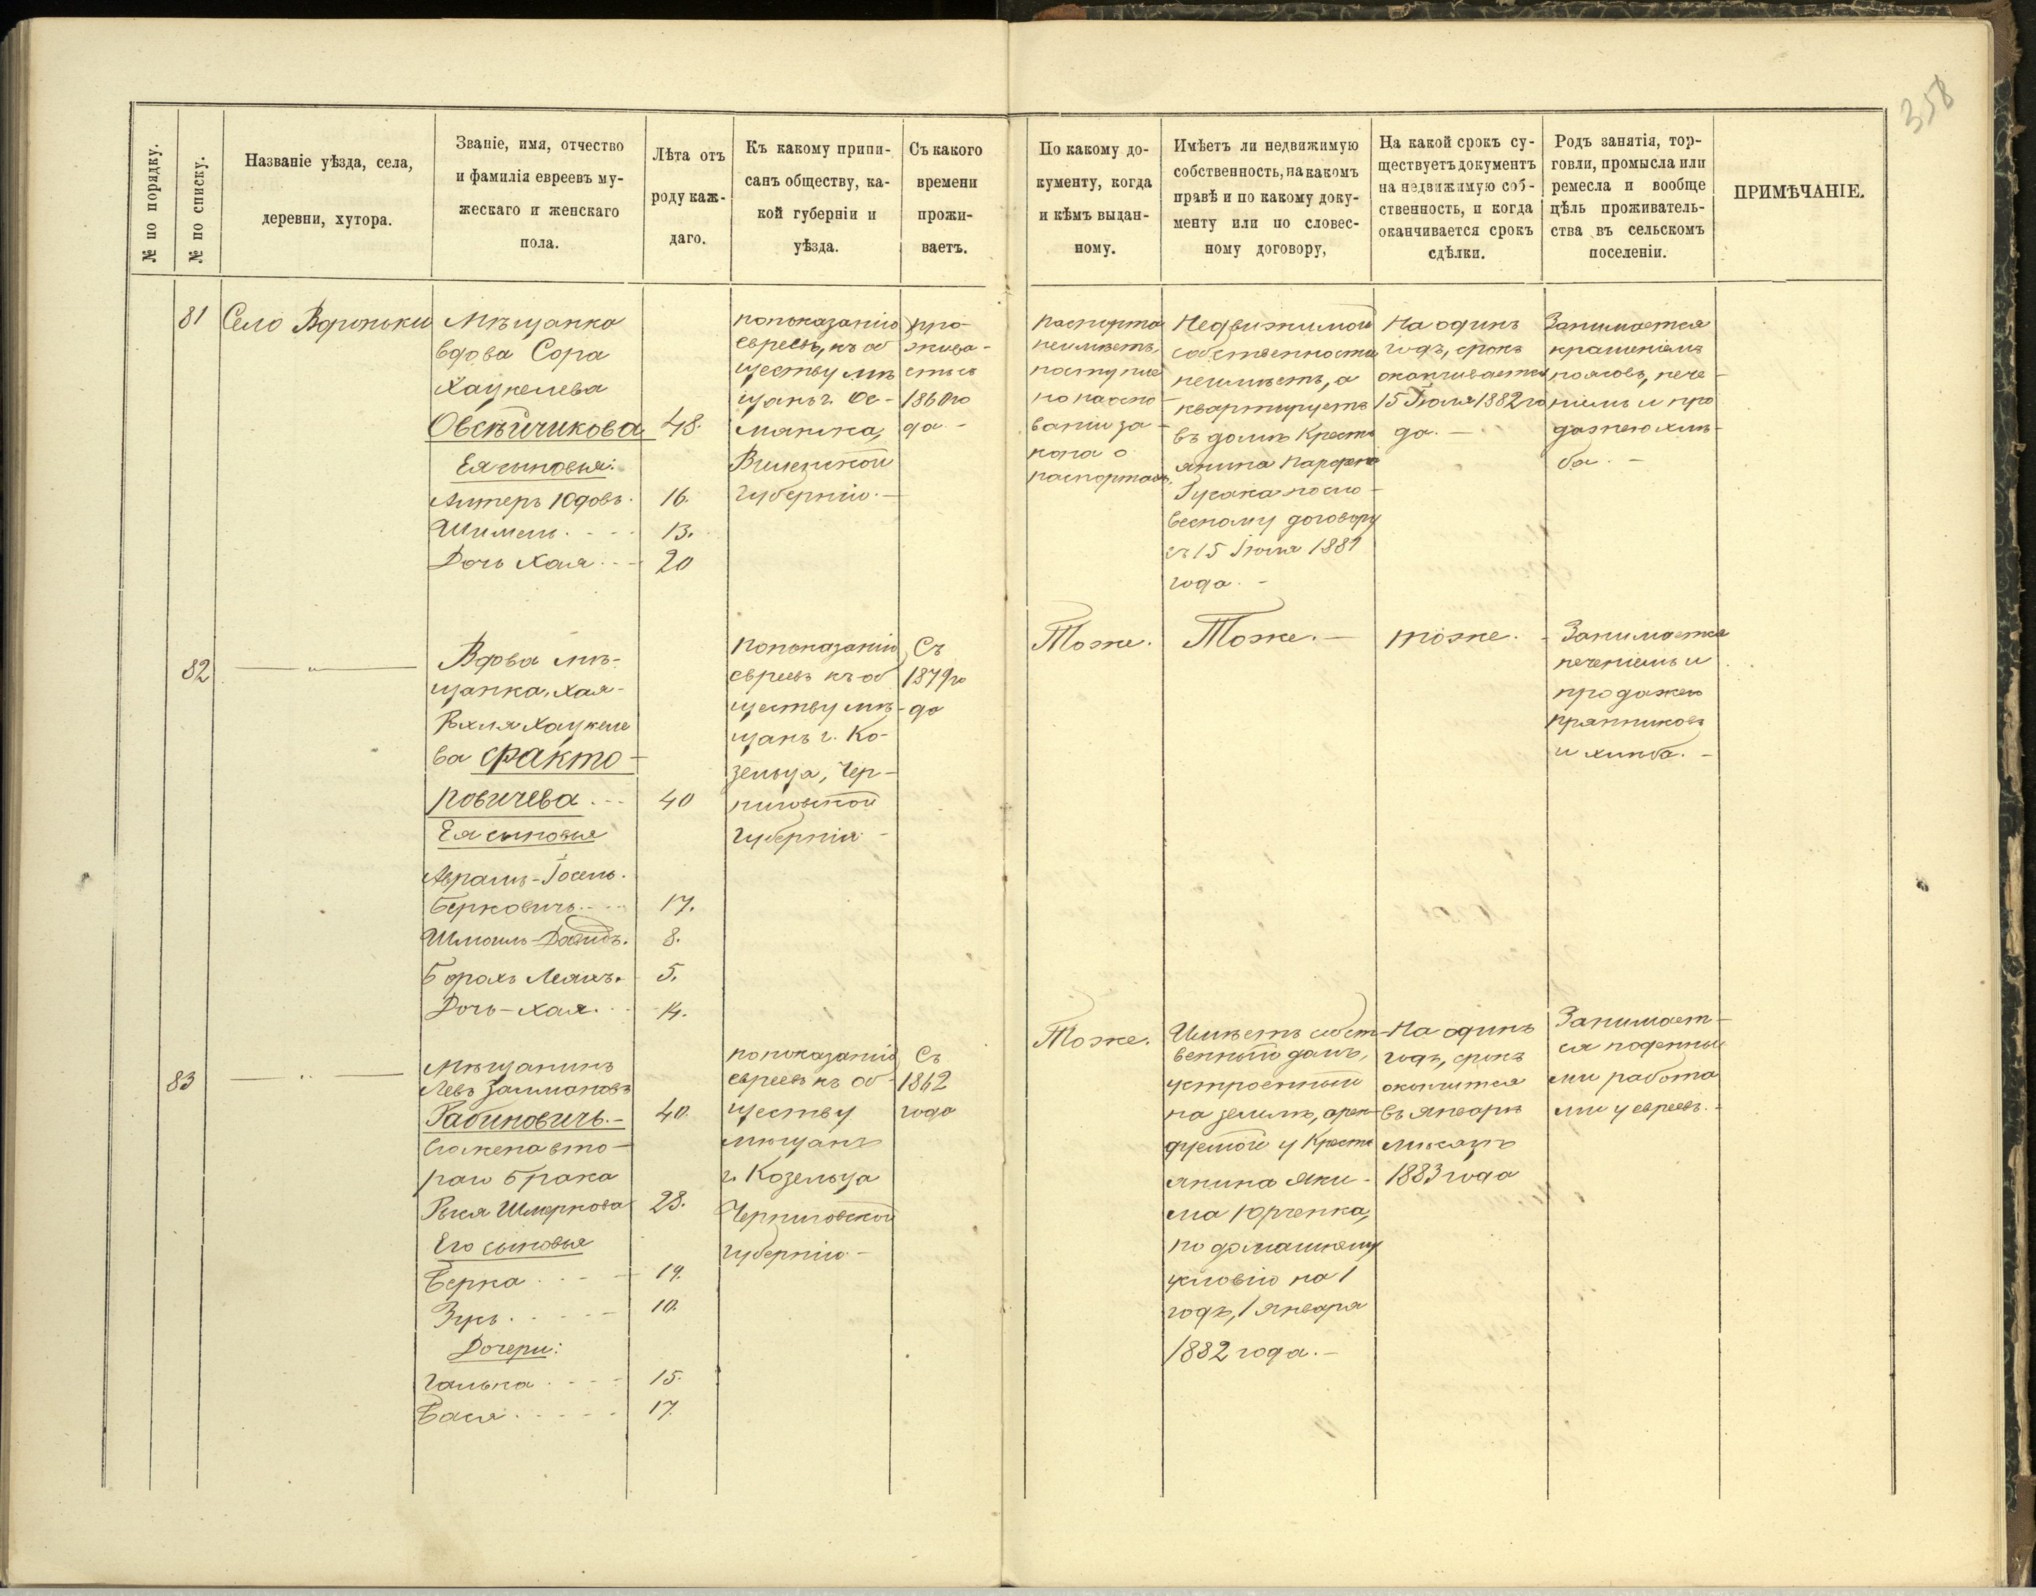 358
№ по порядку.
№ по списку.
Названіе уѣзда, села,
деревни, хутора.
Званіе, имя, отчество
и фамилія евреевъ му-
жескаго и женскаго
пола.
Лѣта отъ
роду каж-
даго.
Къ какому припи-
санъ обществу, ка-
кой губерніи и
уѣзда.
Съ какого
времени
прожи-
ваетъ.
По какому до-
кументу, когда
и кѣмъ выдан-
ному.
Имѣетъ ли недвижимую
собственность, на какомъ
правѣ и по какому доку-
менту или по словес-
ному договору,
На какой срокъ су-
ществуетъ документъ
на недвижимую соб-
ственность, и когда
оканчивается срокъ
сдѣлки.
Родъ занятія, тор-
говли, промысла или
ремесла и вообще
цѣль проживатель-
ства въ сельскомъ
поселеніи.
ПРИМѢЧАНІЕ.
81
Село Вороньки
Мѣщанка
вдова Сора
Хацкелева
Овсѣйчикова 48.
Ея сыновья:
Алтеръ Юдовъ. 16.
Шимель 13.
Дочь Хая 20
по показанію
евреевъ, къ об
ществу мѣ
щанъ г. Ос-
мянка,
Виленской
губерніи.
про-
жива-
етъ съ
1860 го
да
паспорта
неимѣетъ,
поступле
но на осно-
ваніи за-
кона о
паспортахъ.
Недвижимой
собственности
неимѣетъ, а
квартируетъ
въ домѣ Кресть
янина Парфена
Гусака по сло-
весному договору
съ 15 Іюля 1881
года.
На одинъ
годъ, срокъ
оканчивается
15 Іюля 1882 го
да.
Занимается
крашеніемъ
поясовъ, пече-
ніемъ и про
дажею хлѣ-
ба.
82
"
Вдова мѣ-
щанка, Хая-
Рохля Хацкеле
ва Факто-
ровичева 40
Ея сыновья
Абрамъ-Іосель
Берковичъ 17.
Шмоиль-Давидъ. 8.
Борохъ Лейзъ. 5.
Дочь-Хая. 14.
по показанію
евреевъ къ об
ществу мѣ-
щанъ г. Ко-
зельца, Чер-
ниговской
губерніи
Съ
1879 го
да
Тоже.
Тоже.
тоже.
Занимается
печеніемъ и
продажею
пряниковъ
и хлѣба.
83
"
Мѣщанинъ
Левъ Залмановъ
Рабиновичъ. 40.
Его жена вто-
раго брака
Рися Шмеркова 28.
Его сыновья
Берка 19.
10.
Дочери:
Галька 15.
Бася 17.
по показанію
евреевъ къ об
ществу
мѣщанъ
г. Козельца
Черниговской
губерніи
Съ
1862
года
Тоже.
Имѣетъ собст-
венный домъ,
устроенный
на землѣ, арен-
дуемой у Кресть
янина Яки-
ма Юрченка,
по домашнему
условію на 1
годъ, 1 января
1882 года.
На одинъ
годъ, срокъ
окончится
въ Январѣ
мѣсяцѣ
1883 года
Занимает-
ся поденны
ми работа
ми у евреевъ.